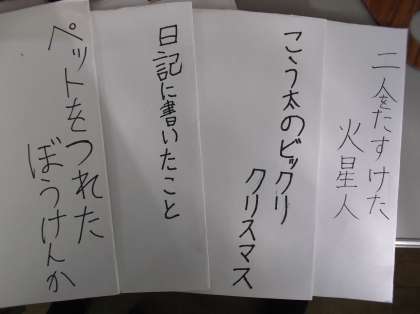 二人をたすけた
火星人
こう太のビックリ
クリスマス
日記に書いたこと
ペットをつれた
ぼうけんか